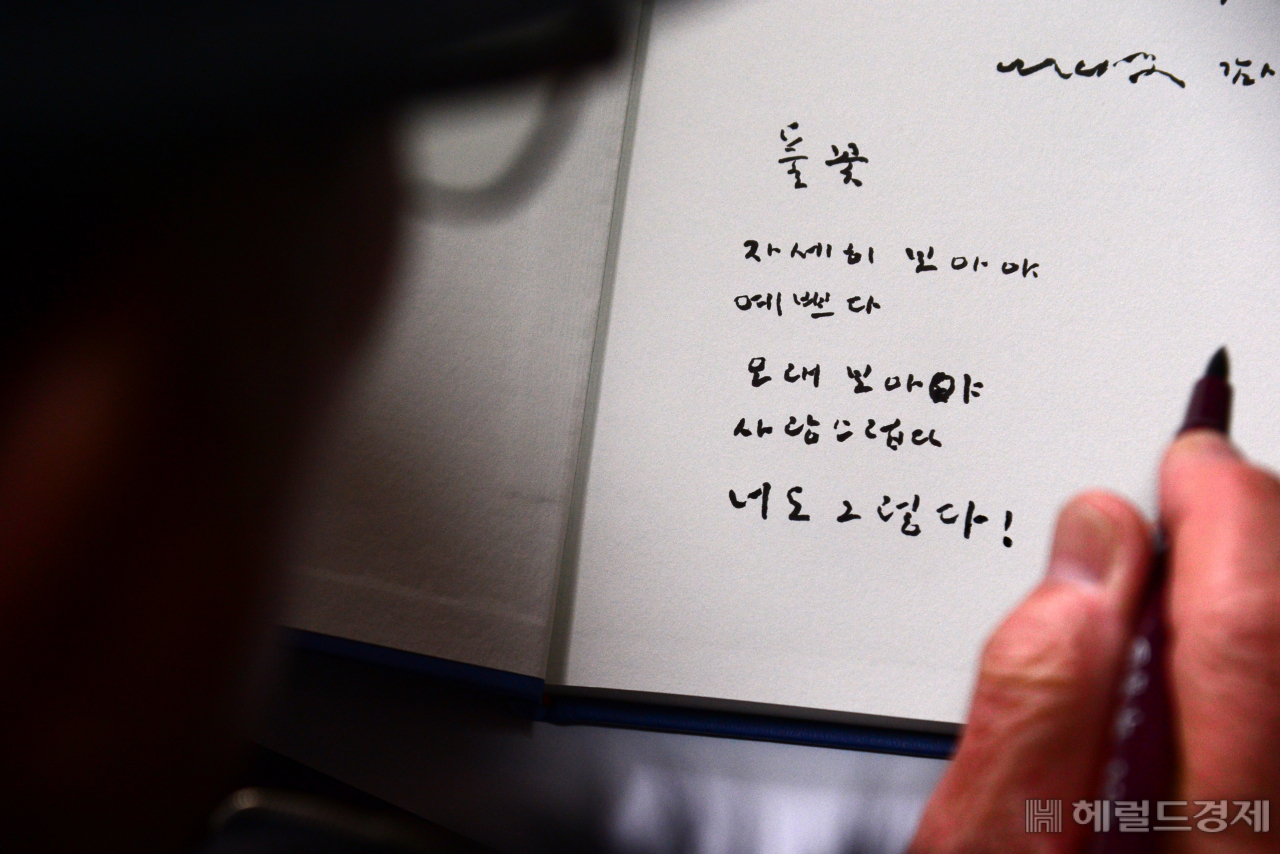 감사
풀꽃
자세히 보아야
예쁘다
오래 보아야
사랑스럽다
너도 그렇다!
헤럴드경제